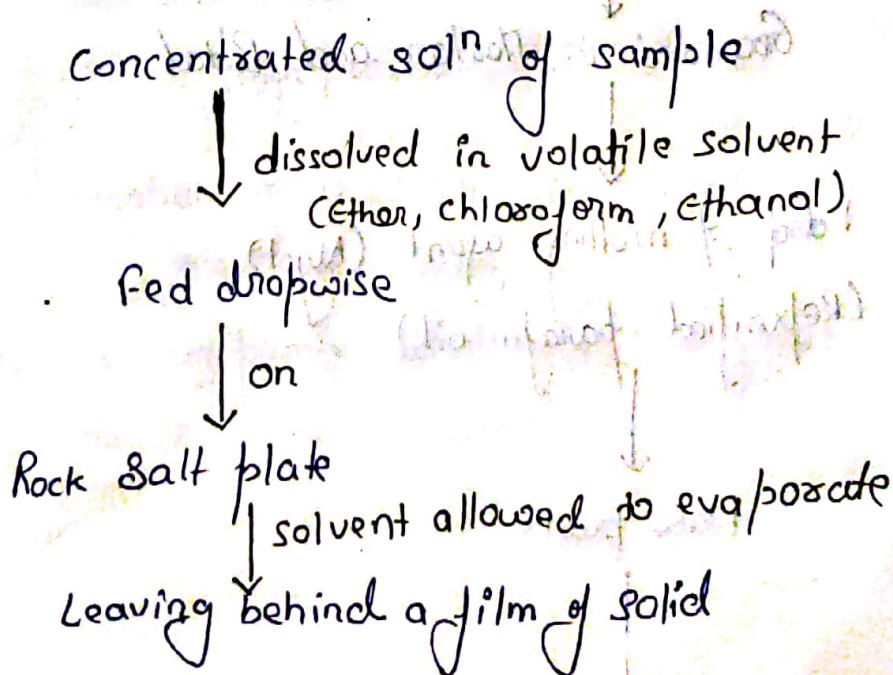 Concentrated solⁿ of sample
dissolved in volatile solvent
(Ether, chloroform, Ethanol)
fed dropwise
on
Rock Salt plate
solvent allowed to evaporate
Leaving behind a film of solid